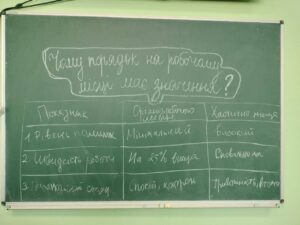 Чому порядок на робочому
місці має значення?
Показник Організоване місце Хаотичне місце
1. Рівень помилок Мінімальний Високий
2. Швидкість роботи На 25% вища Сповільнена
3. стан Спокій, контроль Тривожність, втома